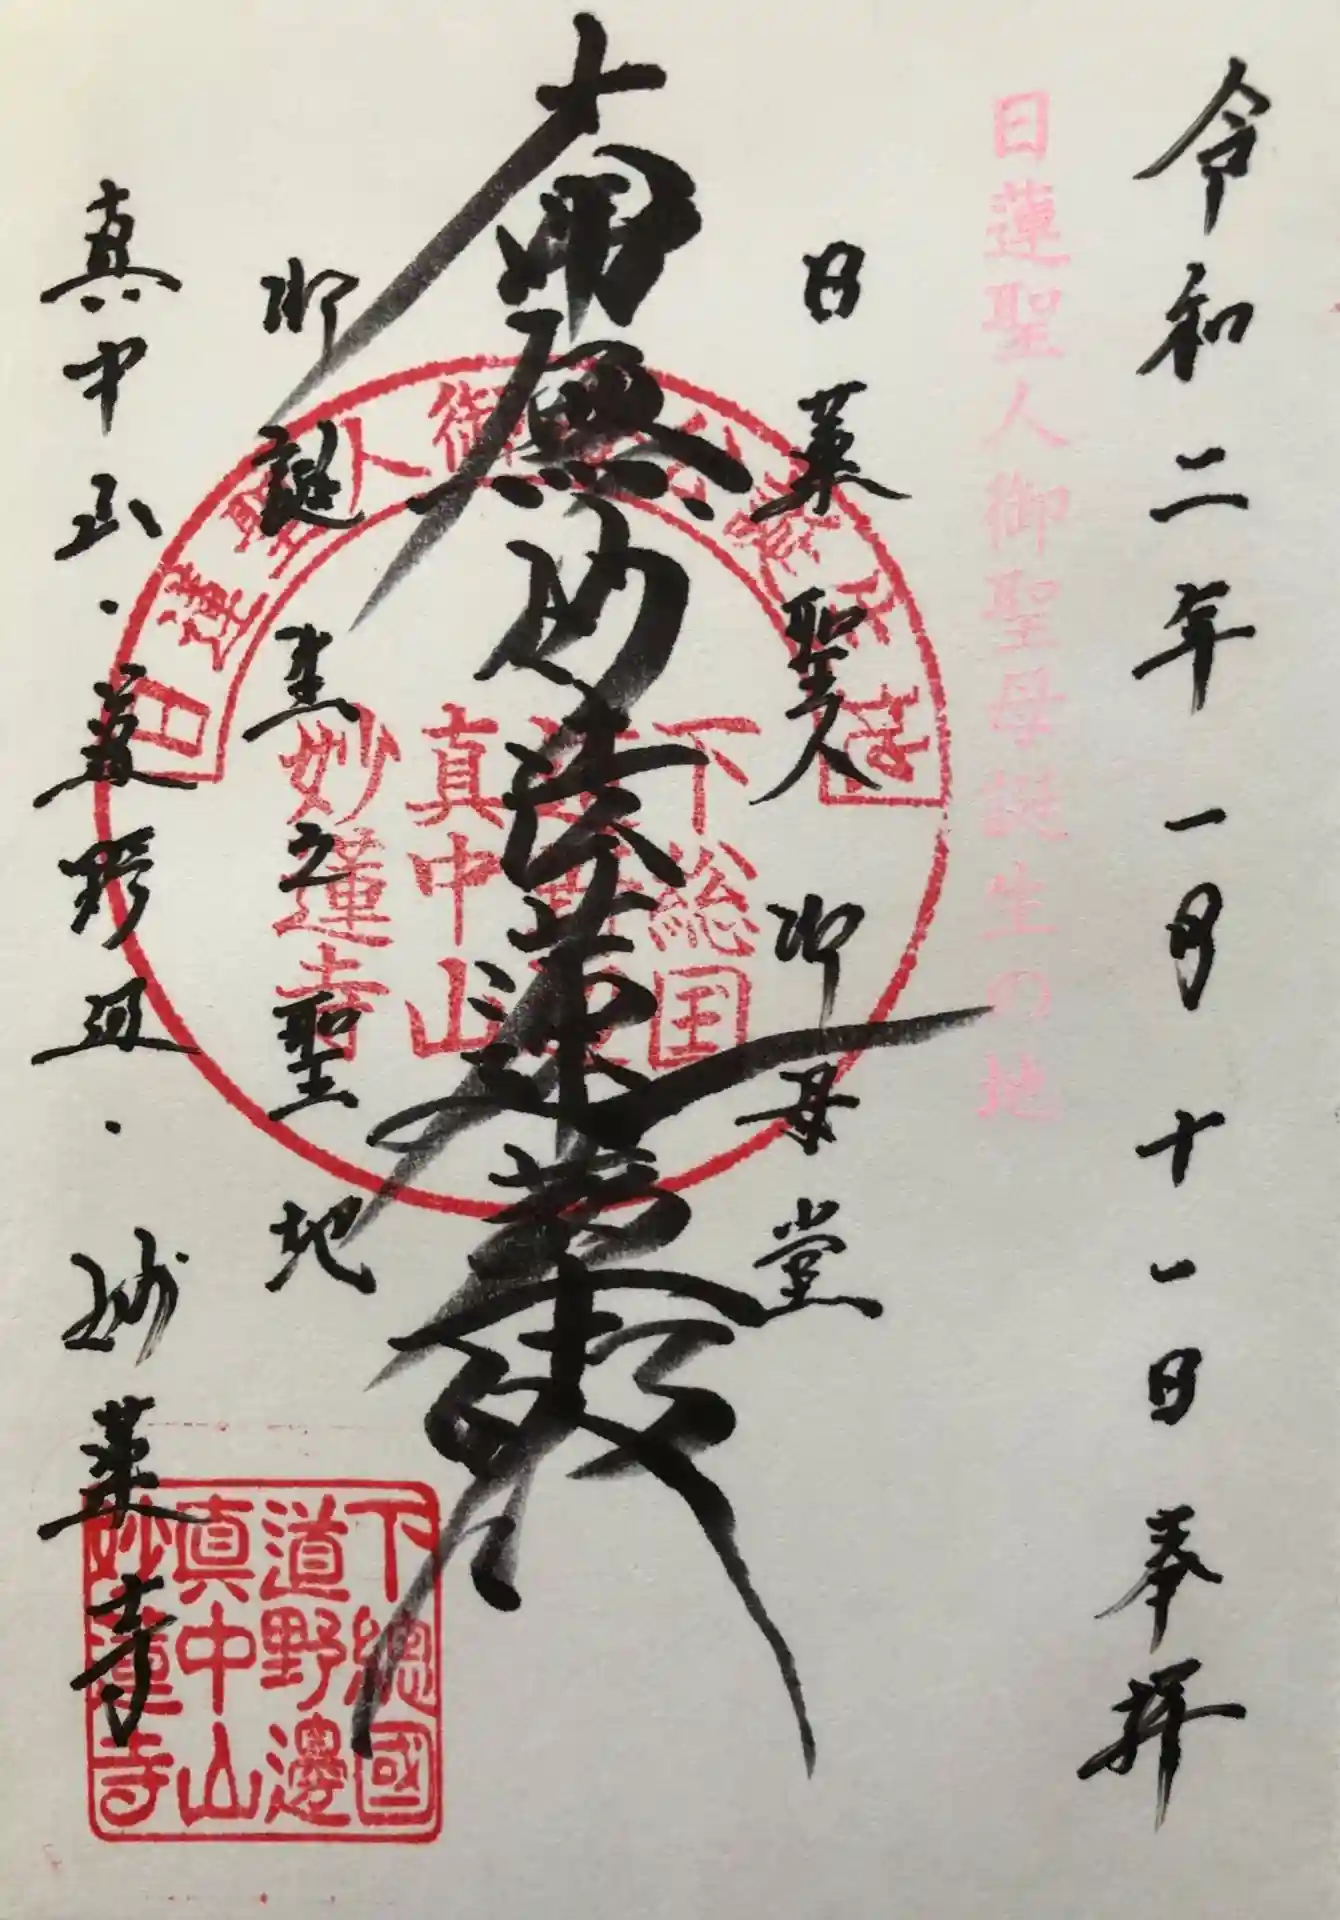 令和二年一月十一日奉拝
日蓮聖人御聖母誕生の地
日蓮聖人御母堂
南無妙法蓮華経
御誕生之聖地
真中山・道野辺・妙蓮寺
日蓮聖人御
下総国
真中山
妙蓮寺
下總國
道野邊
真中山
妙蓮寺